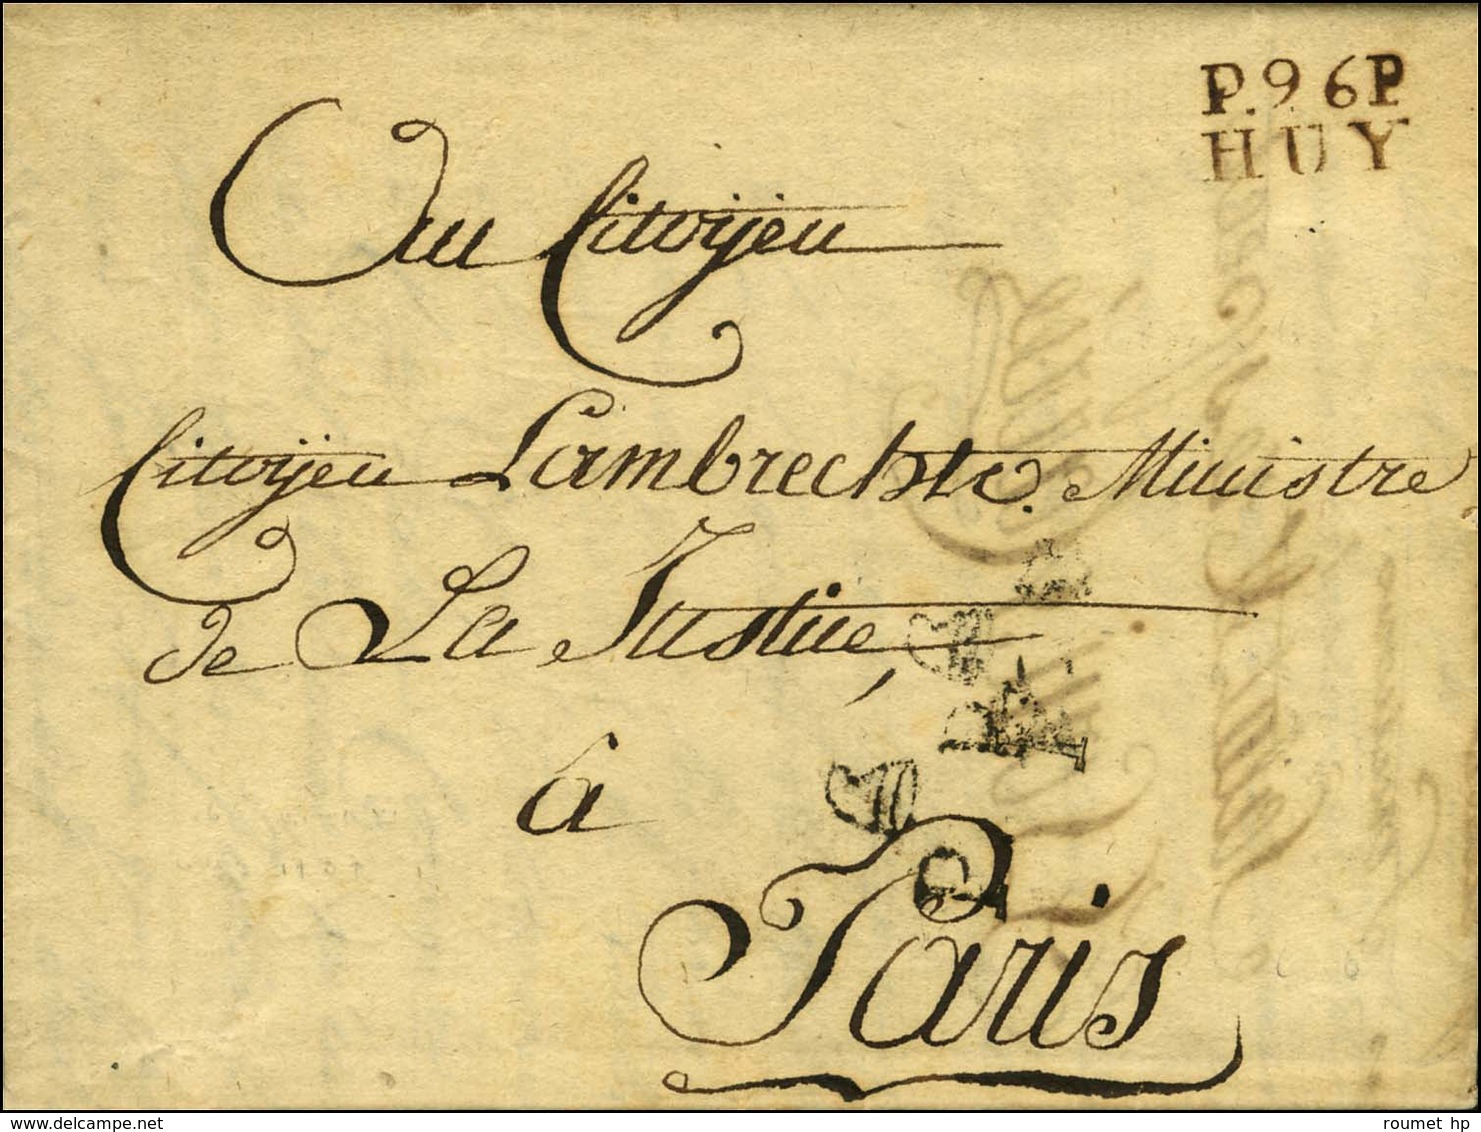 P.96P
HUY
Au Citoyen
Citoyen Lambrechts. Ministre
de La Justice,
à
Paris
roumet hp